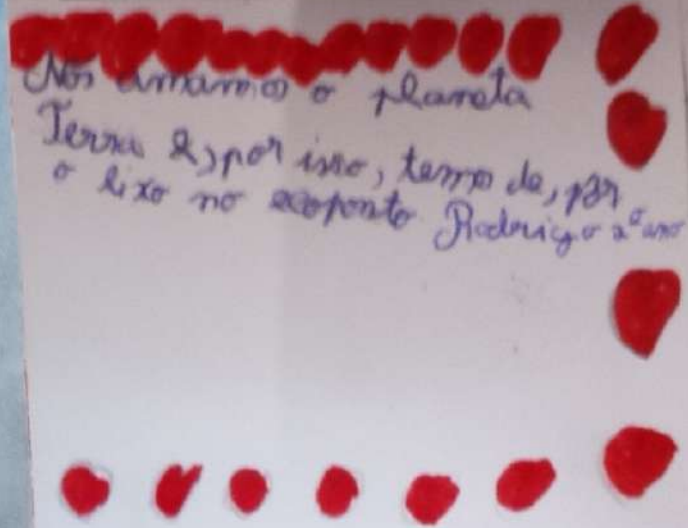 Nós amamos o planeta
Terra e, por isso, temos de, pôr
o lixo no ecoponto Rodrigo 2º ano